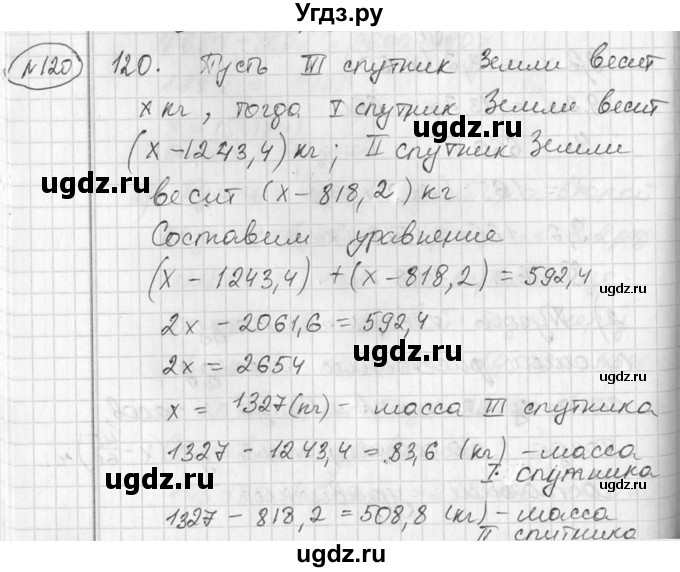 Угдз.ру
№120 120. Пусть III спутник Земли весит
x кг, тогда I спутник Земли весит
(x-1243,4) кг; II спутник Земли
ugdz.ru ugdz.ru
весит (x-818,2) кг
Составим уравнение
(x-1243,4)+(x-818,2)=592,4
ugdz.ru
2x-2061,6=592,4
ugdz.ru
2x=2654
ugdz.ru
x=1327(кг)-масса III спутника
1327-1243,4=83,6 (кг)-масса
I спутника
ugdz.ru ugdz.ru
1327-818,2=508,8(кг)-масса
II спутника
ugdz.ru